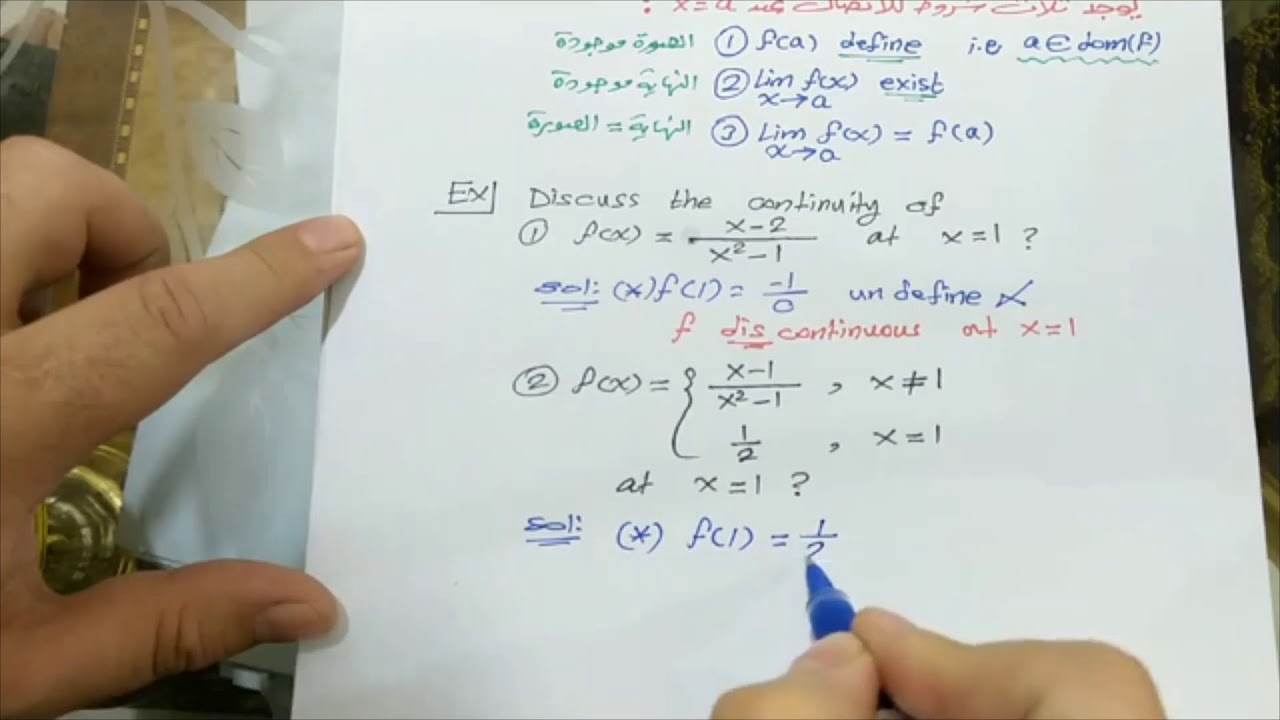 يوجد ثلاث شروط للاتصال عند x=a :
الصورة موجودة ① f(a) define i.e a∈dom(f)
النهاية موجودة ② Lim f(x) exist
x→a
النهاية = الصورة ③ Lim f(x) = f(a)
x→a
Ex] Discuss the continuity of
① f(x) = (x-2)/(x²-1) at x=1 ?
sol: (*) f(1) = -1/0 un define ✗
f dis continuous at x=1
② f(x) = { (x-1)/(x²-1) , x≠1
1/2 , x=1
at x=1 ?
sol: (*) f(1) = 1/2